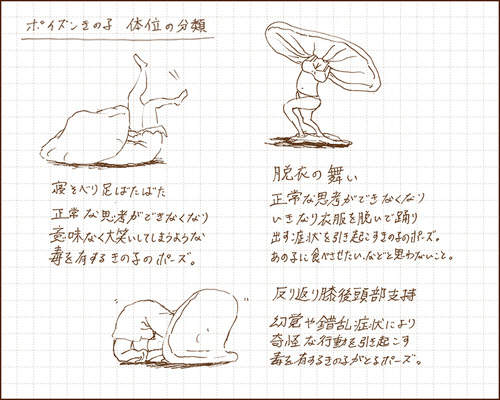 ポイズンきの子 体位の分類
寝そべり足ばたばた
正常な思考ができなくなり
意味なく大笑いしてしまうような
毒を有するきの子のポーズ。
脱衣の舞い
正常な思考ができなくなり
いきなり衣服を脱いで踊り
出す症状を引き起こすきの子のポーズ。
あの子に食べさせたい、などと思わないこと。
反り返り膝後頭部支持
幻覚や錯乱症状により
奇怪な行動を引き起こす
毒を有するきの子がとるポーズ。